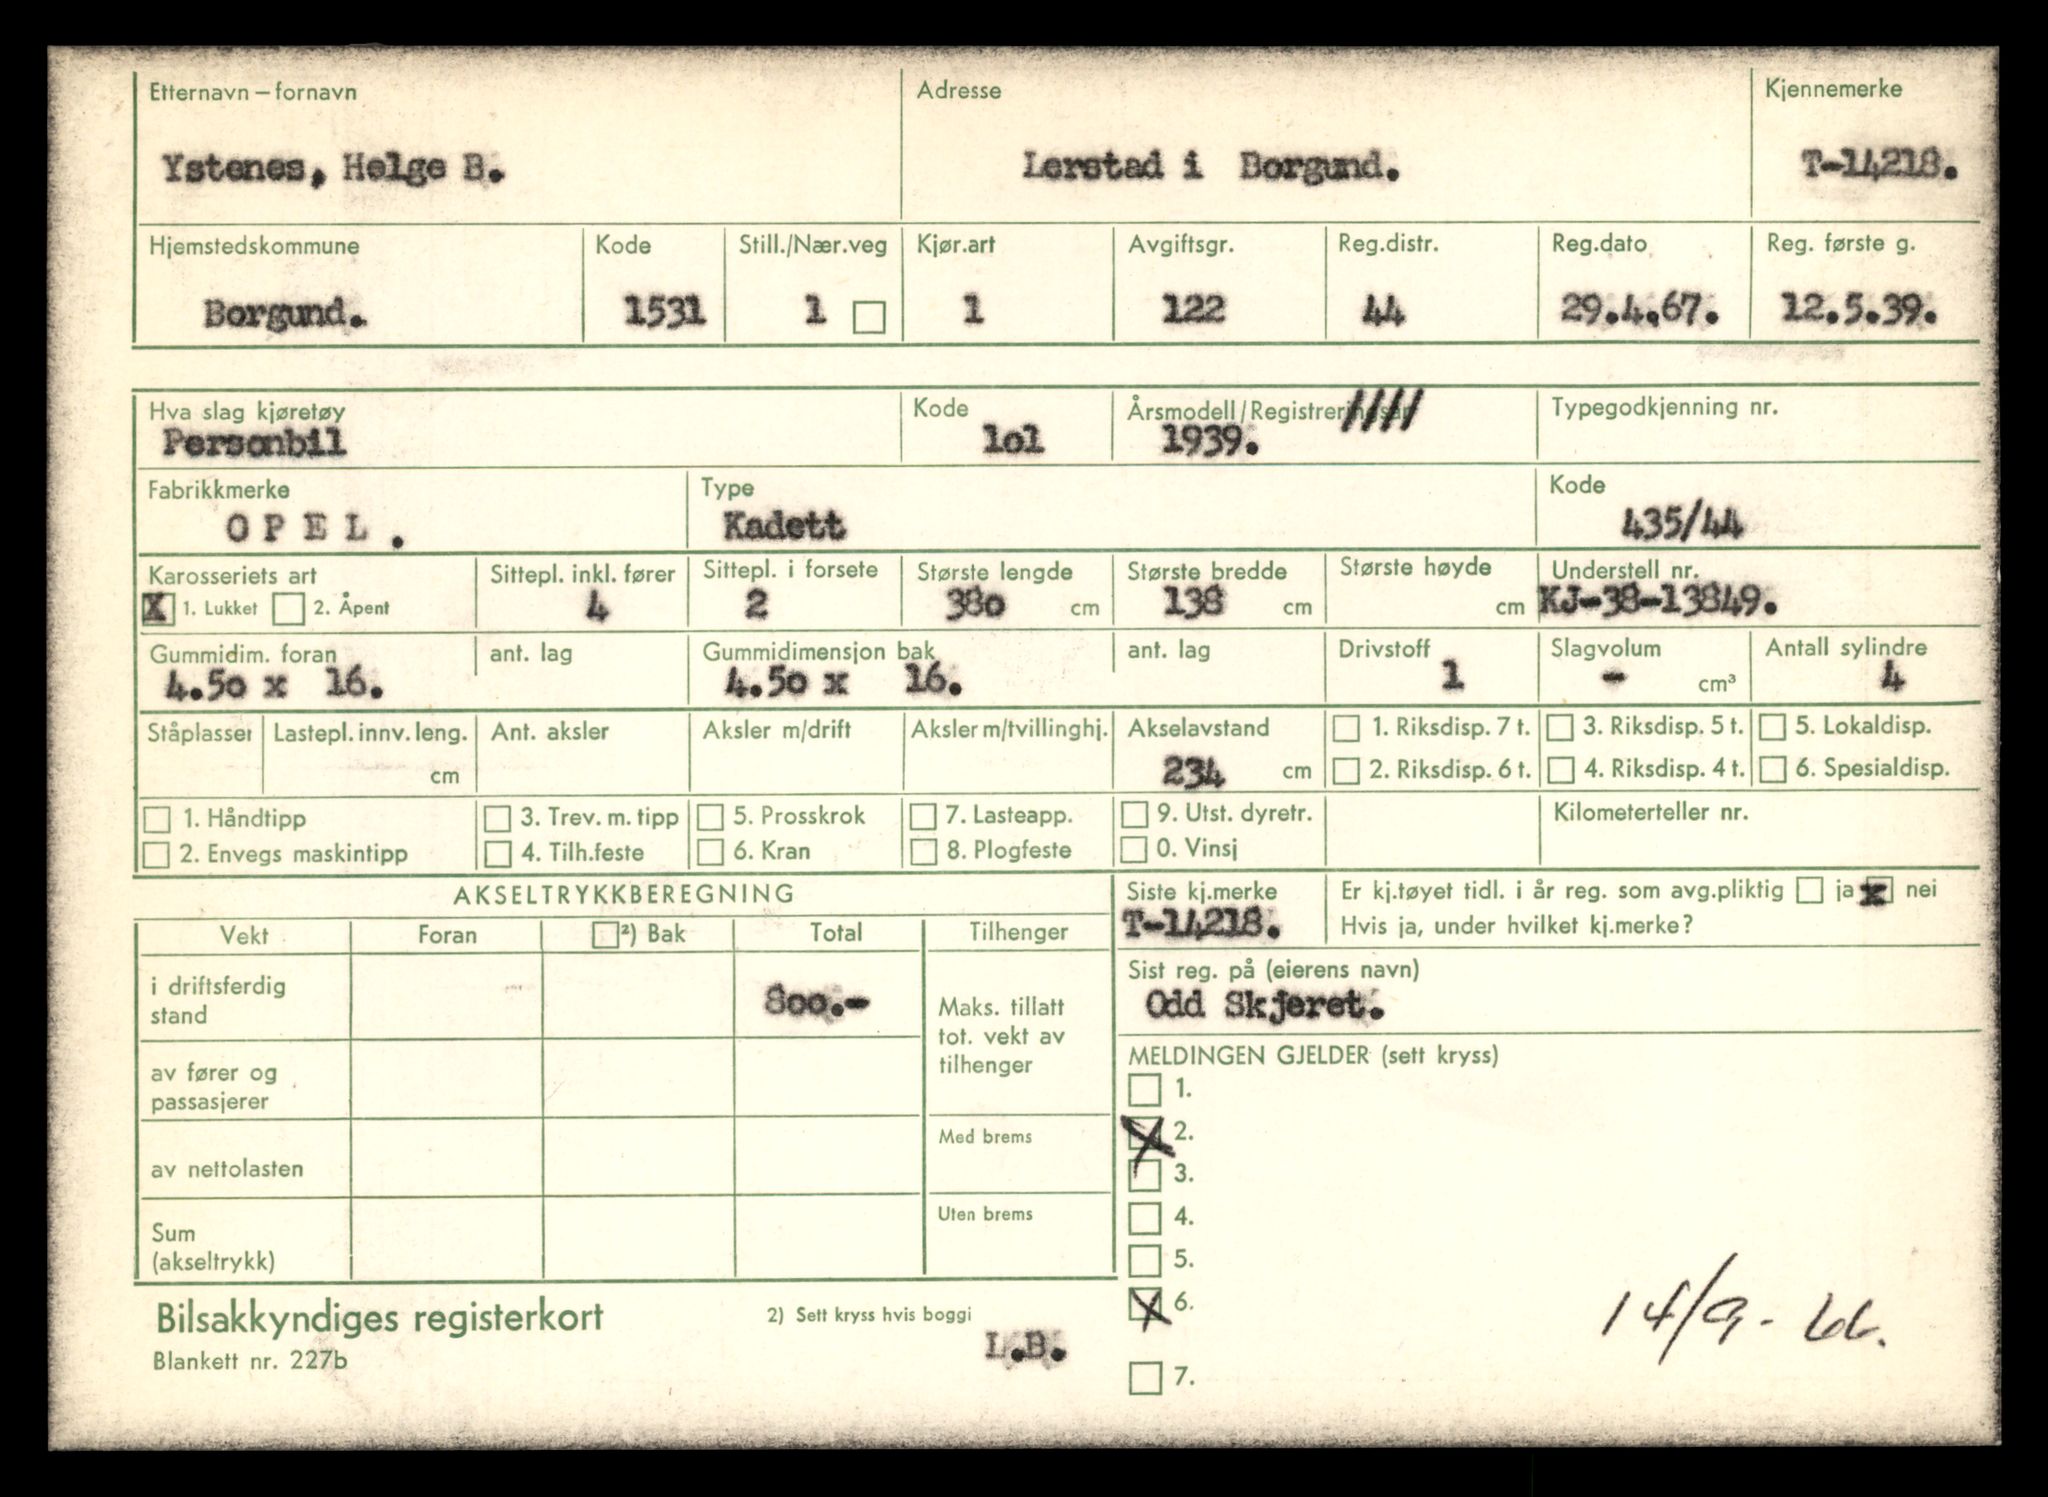 Etternavn – fornavn Adresse Kjennemerke
Ystenes, Helge B. Lerstad i Borgund. T-14218.
Hjemstedskommune Kode Still./Nær.veg Kjør.art Avgiftsgr. Reg.distr. Reg.dato Reg. første g.
Borgund. 1531 1 1 122 44 29.4.67. 12.5.39.
Hva slag kjøretøy Kode Årsmodell/Registreringsår Typegodkjenning nr.
Personbil lol 1939. ////
Fabrikkmerke Type Kode
O P E L . Kadett 435/44
Karosseriets art Sittepl. inkl. fører Sittepl. i forsete Største lengde Største bredde Største høyde Understell nr.
X 1. Lukket 2. Åpent 4 2 380 cm 138 cm cm KJ-38-13849.
Gummidim. foran ant. lag Gummidimensjon bak ant. lag Drivstoff Slagvolum Antall sylindre
4.50 x 16. 4.50 x 16. 1 - cm³ 4
Ståplasser Lastepl. innv. leng. Ant. aksler Aksler m/drift Aksler m/tvillinghj. Akselavstand 1. Riksdisp. 7 t. 3. Riksdisp. 5 t. 5. Lokaldisp.
cm 234 cm 2. Riksdisp. 6 t. 4. Riksdisp. 4 t. 6. Spesialdisp.
1. Håndtipp 3. Trev. m. tipp 5. Prosskrok 7. Lasteapp. 9. Utst. dyretr. Kilometerteller nr.
2. Envegs maskintipp 4. Tilh.feste 6. Kran 8. Plogfeste 0. Vinsj
AKSELTRYKKBEREGNING Siste kj.merke Er kj.tøyet tidl. i år reg. som avg.pliktig ja x nei
T-14218. Hvis ja, under hvilket kj.merke?
Vekt Foran ²) Bak Total Tilhenger
Sist reg. på (eierens navn)
i driftsferdig stand 800.- Maks. tillatt tot. vekt av tilhenger
Odd Skjeret.
MELDINGEN GJELDER (sett kryss)
av fører og passasjerer
1.
X 2.
Med brems
av nettolasten
3.
4.
Uten brems
Sum (akseltrykk)
5.
X 6.
14/9 - 66.
Bilsakkyndiges registerkort 2) Sett kryss hvis boggi
L.B.
Blankett nr. 227b
7.